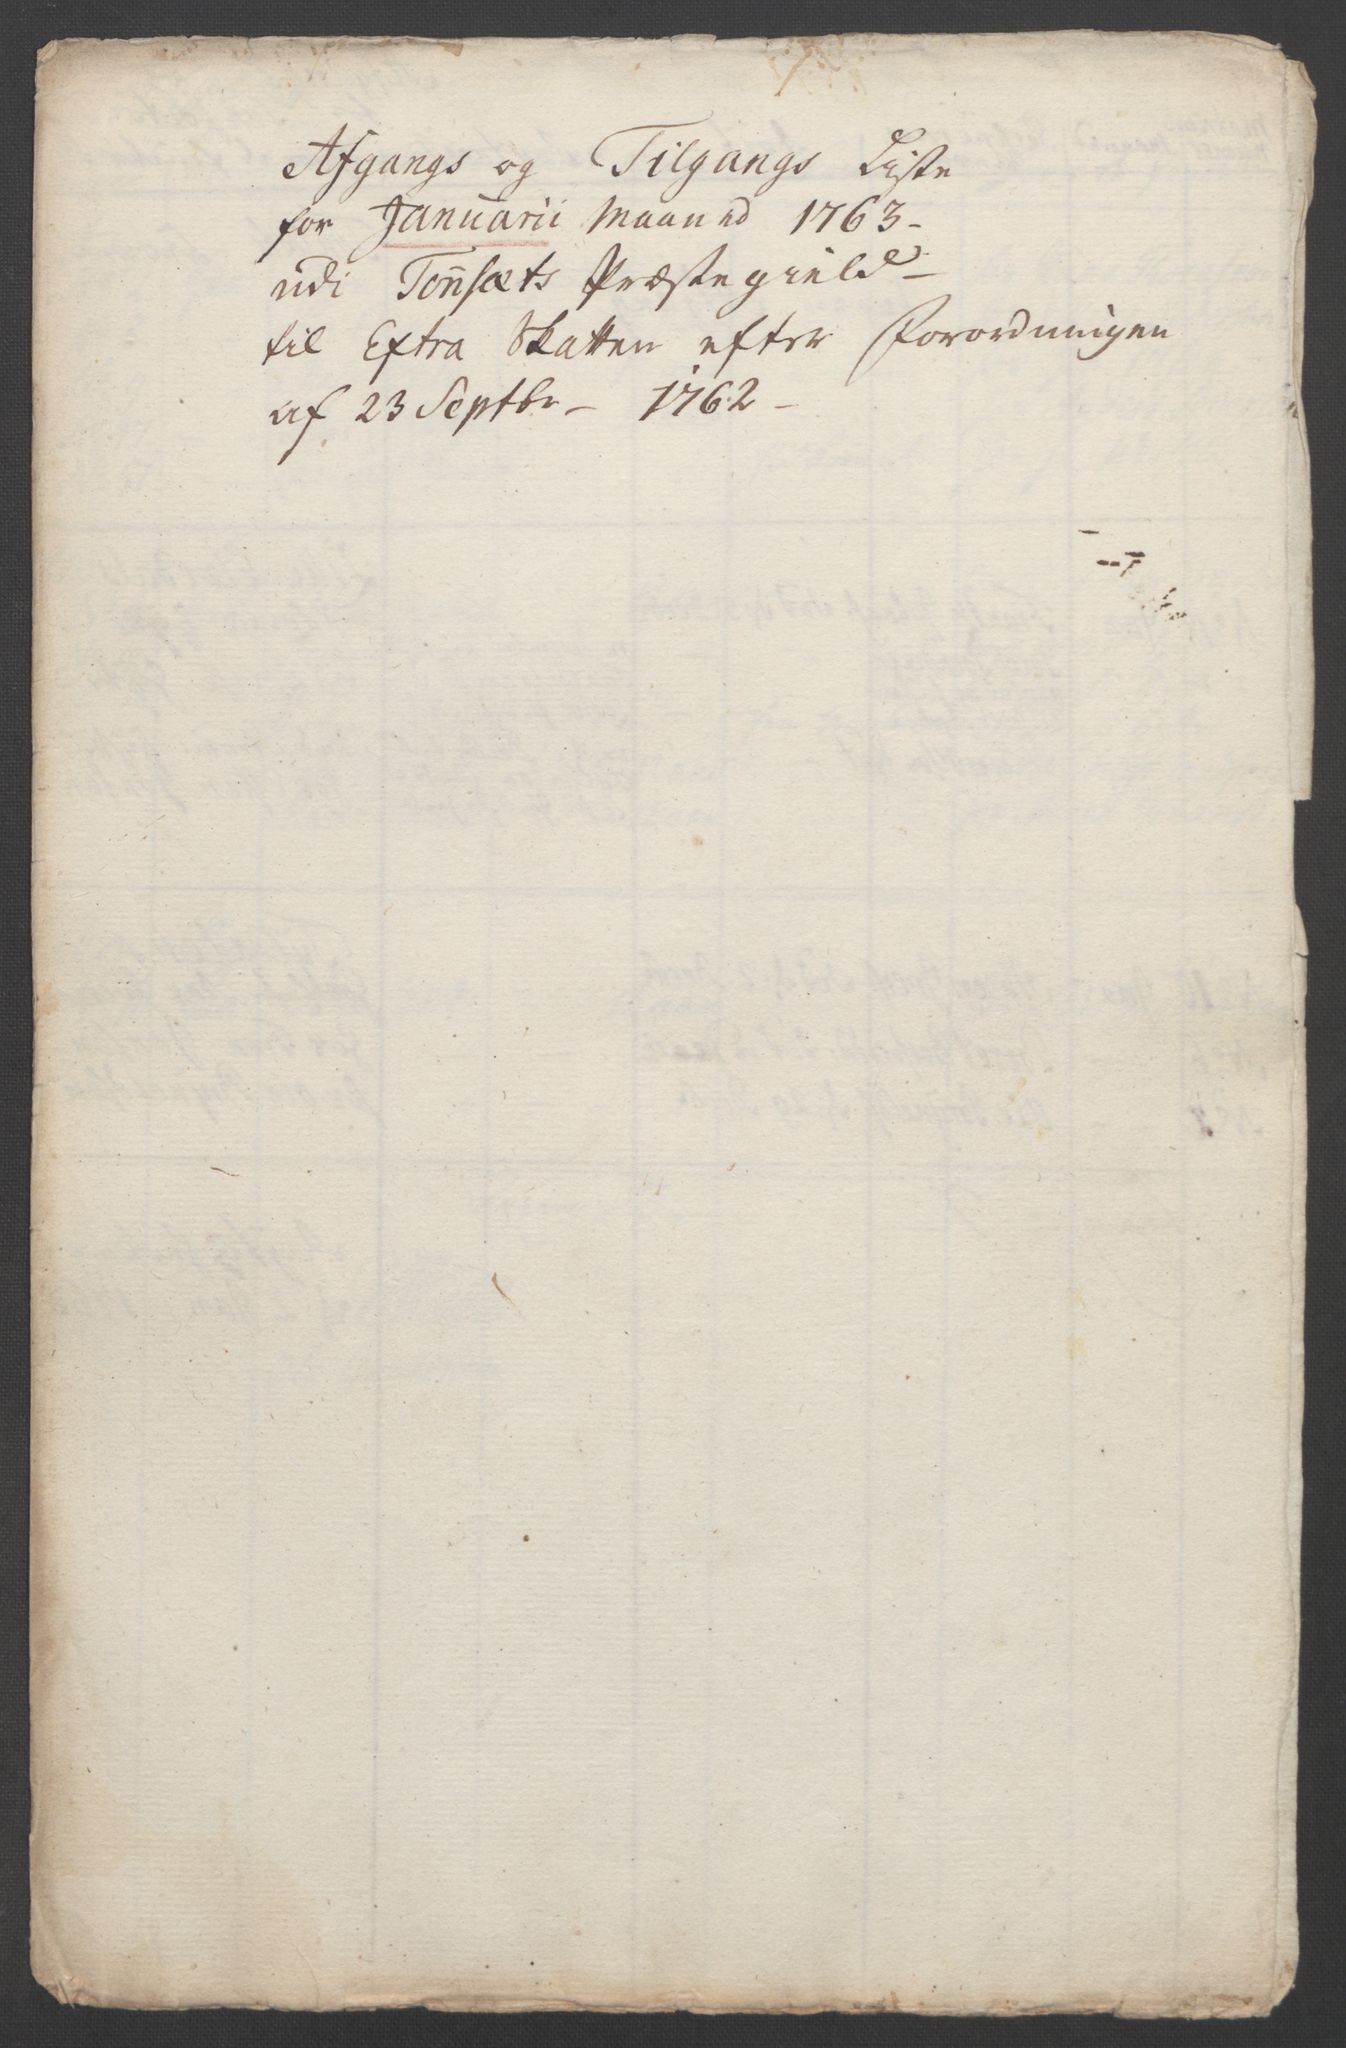 Afgangs og Tilgangs Liste
for Januarii Maaned 1763 -
udi Tønsæts Præstegield -
til Extra Skatten efter Forordningen
af 23 Septbr - 1762 -